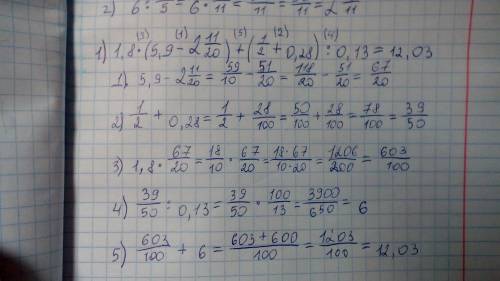 2) 6 : 5 = 6 · 11 11 11 = 2 11
(3) (1) (5) (2) (4)
1) 1,8 · (5,9 - 2 11/20) + (1/2 + 0,28) : 0,13 = 12,03
1). 5,9 - 2 11/20 = 59/10 - 51/20 = 118/20 - 51/20 = 67/20
2) 1/2 + 0,28 = 1/2 + 28/100 = 50/100 + 28/100 = 78/100 = 39/50
3) 1,8 · 67/20 = 18/10 · 67/20 = 18·67/10·20 = 1206/200 = 603/100
4) 39/50 : 0,13 = 39/50 · 100/13 = 3900/650 = 6
5) 603/100 + 6 = 603+600/100 = 1203/100 = 12,03